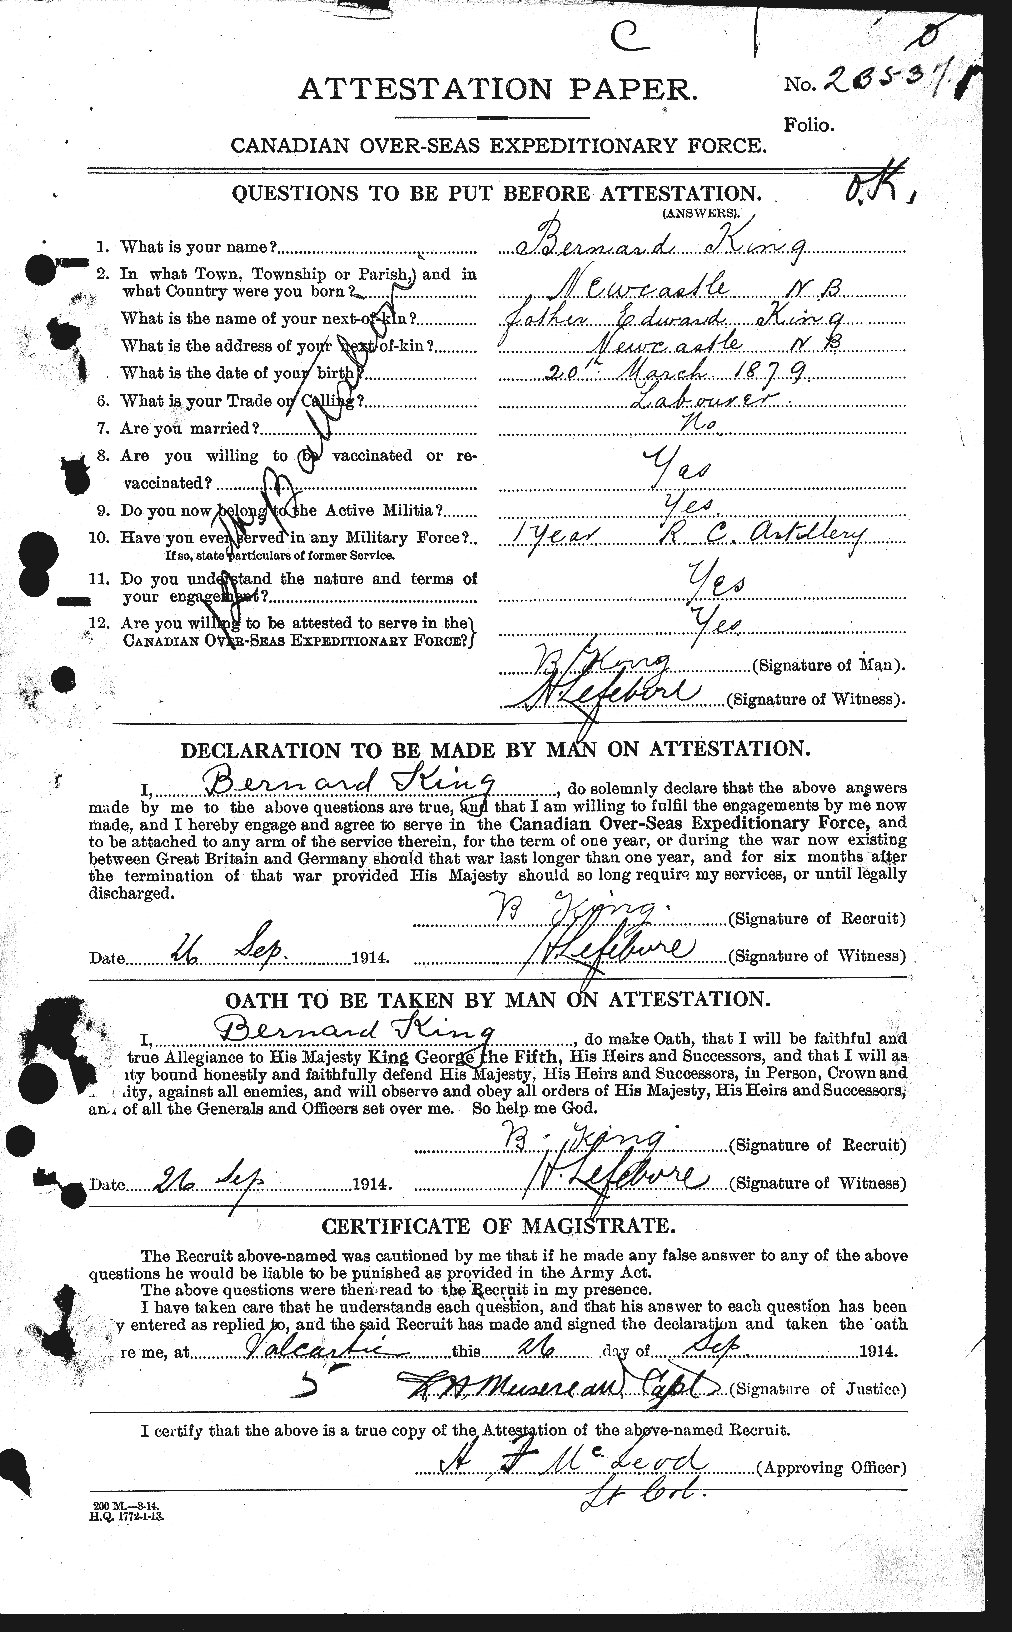 C
ATTESTATION PAPER.
No.
Folio.
CANADIAN OVER-SEAS EXPEDITIONARY FORCE.
O.K.
QUESTIONS TO BE PUT BEFORE ATTESTATION.
(ANSWERS).
1. What is your name? Bernard King
2. In what Town, Township or Parish, and in
what Country were you born? Newcastle N B
What is the name of your next-of-kin? father Edward King
What is the address of your next-of-kin? Newcastle N B
What is the date of your birth? 20th March 1879
6. What is your Trade or Calling? Labourer.
7. Are you married? No
8. Are you willing to be vaccinated or re-
vaccinated? Yas
9. Do you now belong to the Active Militia? Yes.
10. Have you ever served in any Military Force? 1 Year R C. Artillery
If so, state particulars of former Service.
11. Do you understand the nature and terms of
your engagement? Yes
12. Are you willing to be attested to serve in the
CANADIAN OVER-SEAS EXPEDITIONARY FORCE? Yes
12th Battalion
B King (Signature of Man).
H Lefebvre (Signature of Witness).
DECLARATION TO BE MADE BY MAN ON ATTESTATION.
I, Bernard King, do solemnly declare that the above answers
made by me to the above questions are true, and that I am willing to fulfil the engagements by me now
made, and I hereby engage and agree to serve in the Canadian Over-Seas Expeditionary Force, and
to be attached to any arm of the service therein, for the term of one year, or during the war now existing
between Great Britain and Germany should that war last longer than one year, and for six months after
the termination of that war provided His Majesty should so long require my services, or until legally
discharged.
B King. (Signature of Recruit)
Date 26 Sep. 1914. H Lefebvre (Signature of Witness)
OATH TO BE TAKEN BY MAN ON ATTESTATION.
I, Bernard King, do make Oath, that I will be faithful and
true Allegiance to His Majesty King George the Fifth, His Heirs and Successors, and that I will as
ity bound honestly and faithfully defend His Majesty, His Heirs and Successors, in Person, Crown and
ity, against all enemies, and will observe and obey all orders of His Majesty, His Heirs and Successors,
an of all the Generals and Officers set over me. So help me God.
B. King (Signature of Recruit)
Date 26 Sep 1914. H. Lefebvre (Signature of Witness)
CERTIFICATE OF MAGISTRATE.
The Recruit above-named was cautioned by me that if he made any false answer to any of the above
questions he would be liable to be punished as provided in the Army Act.
The above questions were then read to the Recruit in my presence.
I have taken care that he understands each question, and that his answer to each question has been
y entered as replied to, and the said Recruit has made and signed the declaration and taken the oath
re me, at Valcartie this 26 day of Sep 1914.
5 Capt (Signature of Justice)
I certify that the above is a true copy of the Attestation of the above-named Recruit.
H F McLeod (Approving Officer)
Lt Col.
200 M.—8-14.
H.Q. 1772-1-13.